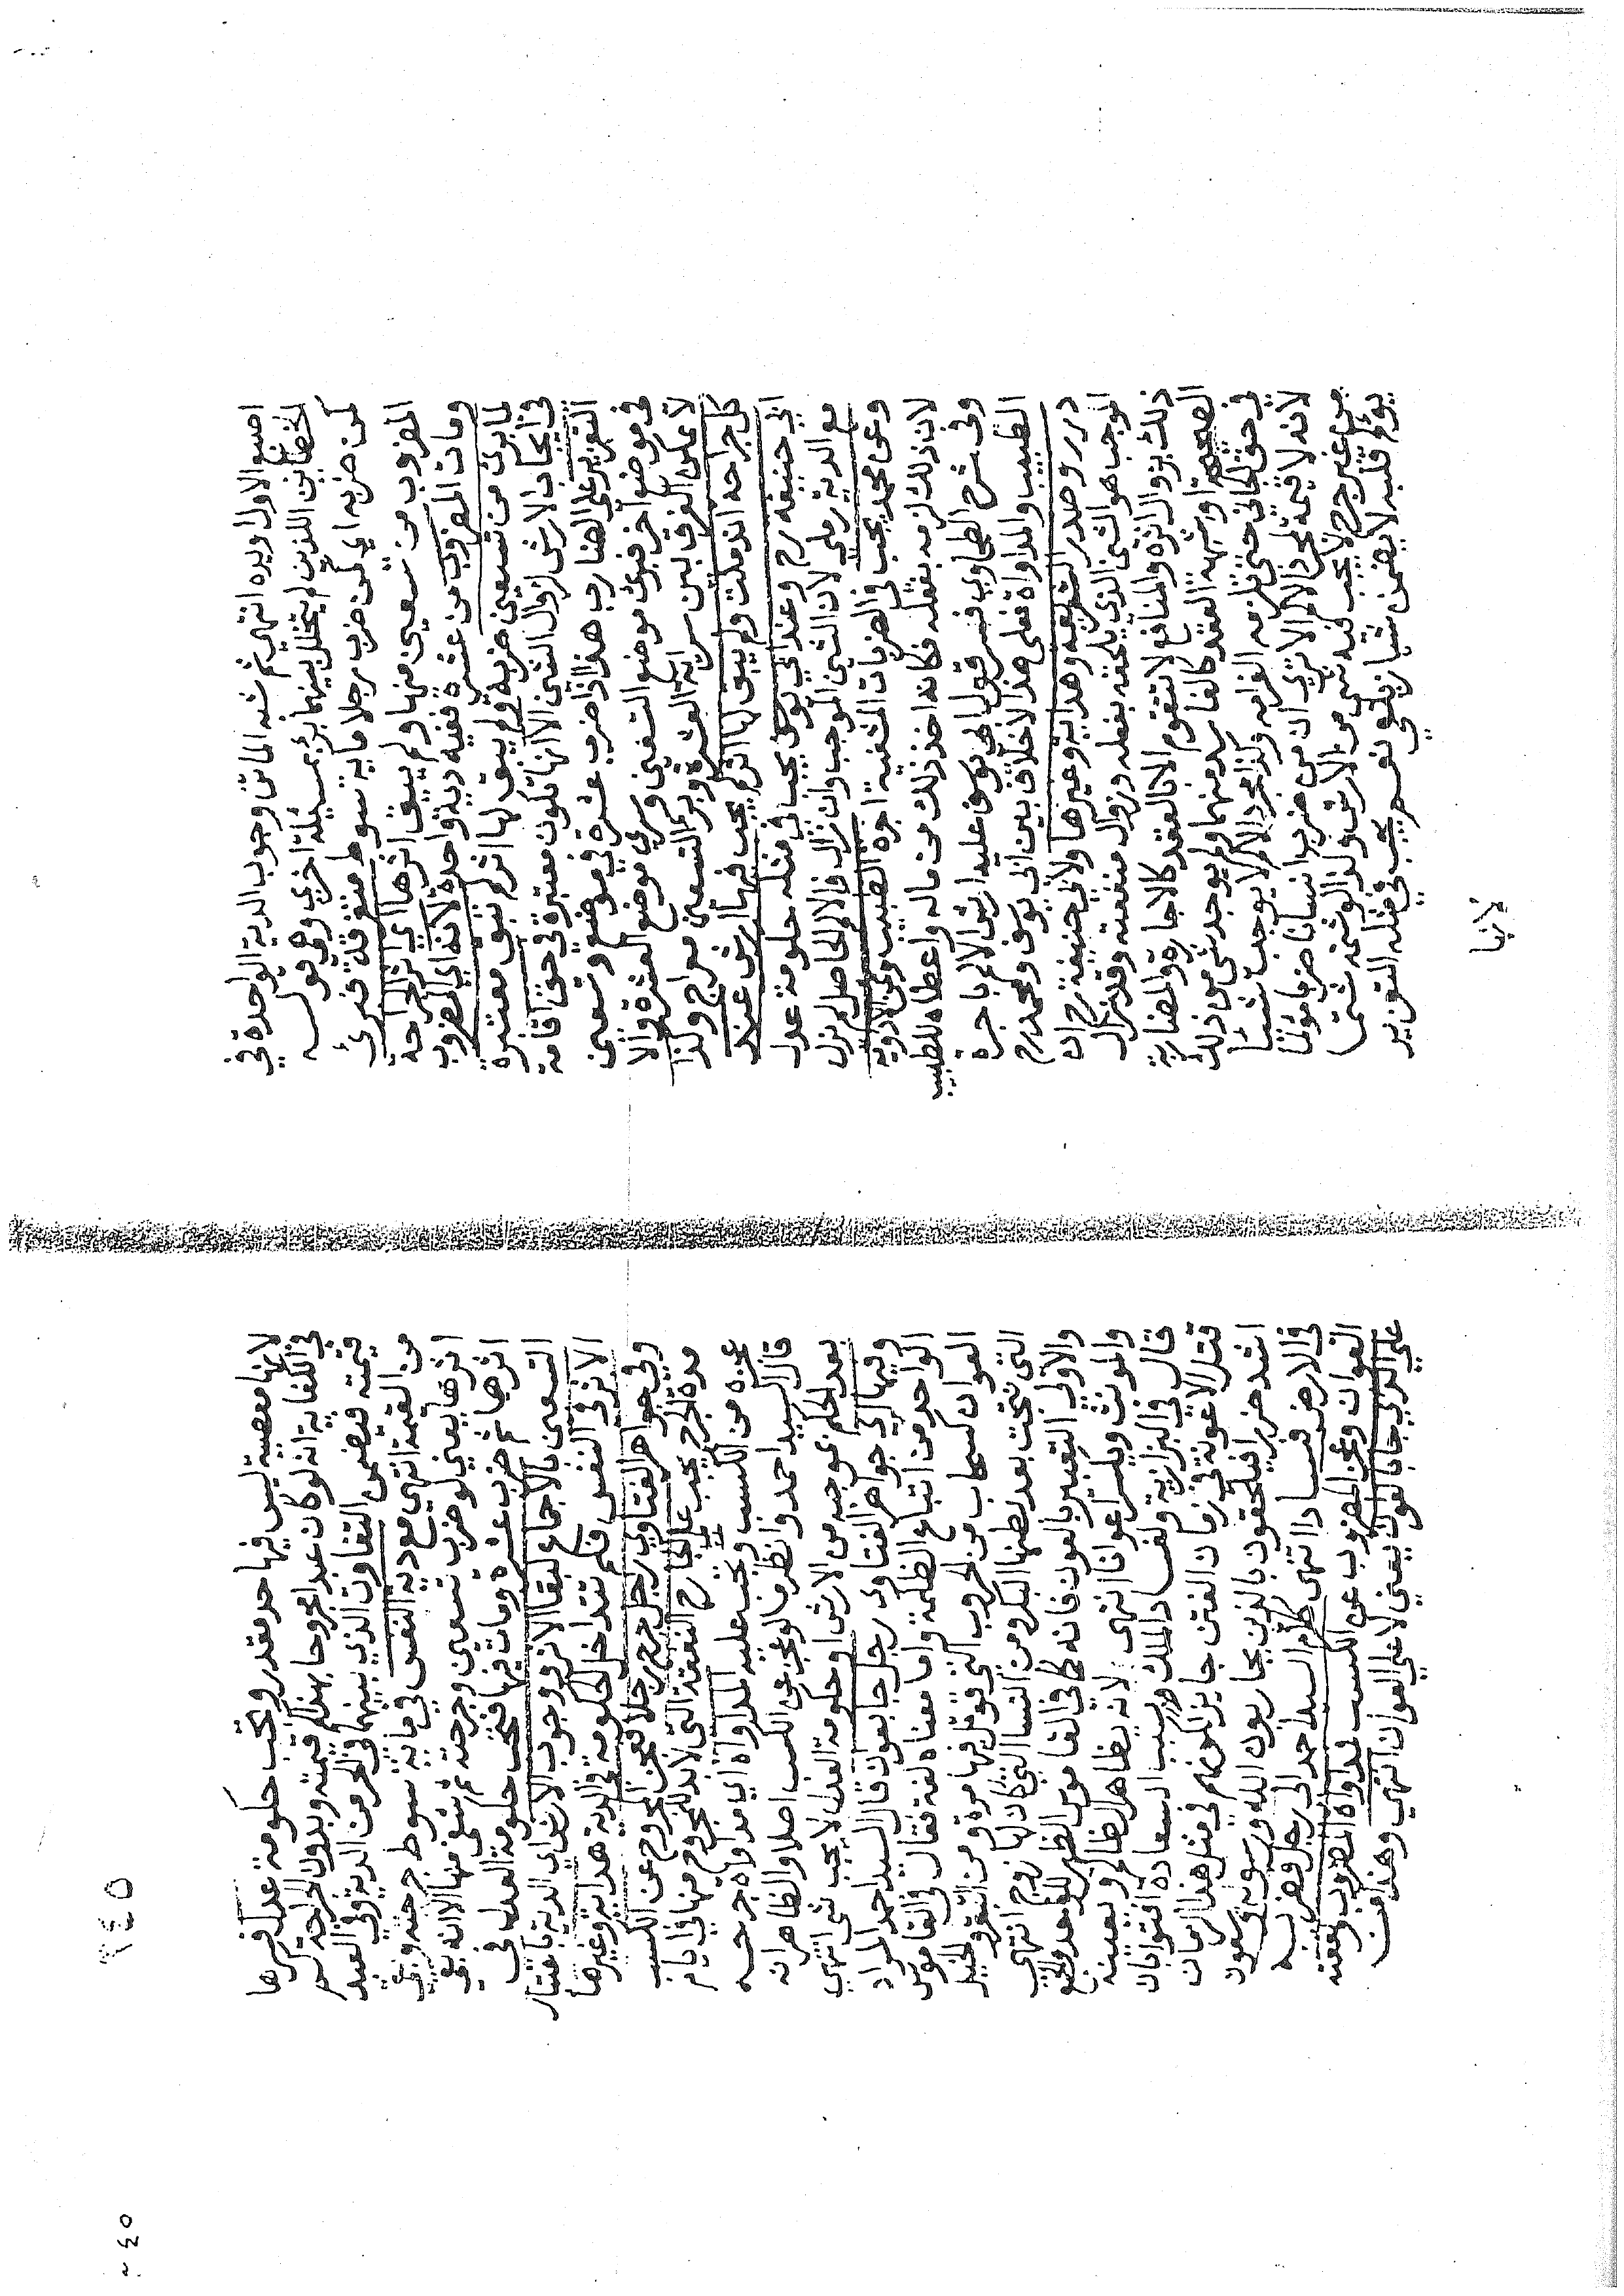 اصبع الاول اويده انتهى ثم شبه الماتن وجوب الدية الواحدة في
الخطاين اللذين لم يتخلل بينهما برء بمسئلة اخرى وهى قوله
كمن ضربه اي كمن ضرب رجلا ماية سوط متفرقة فبرئ
المضروب من تسعين منها ولم يبق اثرها اي اثر الجراحة
ومات المضروب من عشرة ففيه دية واحدة لانه اي المضروب
لما برئ من تسعين ضربة ولم يبق لها اثر لم تبق معتبرة
في ايجاب الارش لزوال الشين الا انها تكون معتبرة في حق اقامة
التعزير على الضارب هذا اذا ضرب عشرة في موضع وتسعين
في موضع اخر فبرئ موضع التسعين وسرى موضع العشرة والا
لا يمكن الفرق بين سراية العشرة وبرء التسعين معراج وكذا
كل جراحة اندملت ولم يبق لها اثر لم يجب فيها ارش عند
ابي حنيفه رح وعند ابي يوسف يجب في مثله حكومة عدل
مع الدية زيلعي لان الشين الموجب وان زال فالالم الحاصل لم يزل
وعن محمد يجب في الضربات المشفية اجرة الطبيب وثمن الادوية
لان ذلك لزمه بفعله فكانه اخذ ذلك من ماله واعطاه للطبيب
وفي شرح الطحاوي فسر قول ابي يوسف عليه ارش الالم باجرة
الطبيب والمداواة فعلى هذا لاخلاف بين ابي يوسف ومحمد رح
درر وصدر الشريعه وهدايه وغيرها ولابي حنيفة رح ان
الموجب هو الشين الذي يلحقه بفعله وزوال منفعته وقد زال
ذلك بزوال اثره والمنافع لا تتقوم الا بالعقد كالاجارة والمضاربة
الصحيحة او شبهة العقد كالفاسد منهما ولم يوجد شئ من ذلك
في حق الجاني حتى تلزمه الغرامه وكذا مجرد الالم لا يوجب شيئا
لانه لا قيمة لمجرد الالم الا ترى ان من ضرب انسانا ضربا مولما
من غير جرح لا يجب فيه شئ من الارش وكذا لو شتمه شتما
يولم قلبه لا يضمن شيئا زيلعي نعم يجب في مثله التعزير
لانها
٢٤٥
لانها معصية ليس فيها حد مقدر وتجب حكومة عدل فسرها
في الكفاية انه لو كان عبدا مجروحا بهذا كم قيمته وبدون الجراحة كم
قيمته فيضمن التفاوت الذي بينهما في الحر من الدية وفي العبد
من القيمة انتهى مع دية النفس في ماية سوط جرحته وبقي
اثرها يعني لو ضرب تسعين وجرحته ثم شفي منها الا انه بقي
اثرها ثم ضرب عشرة ومات فيها فتجب حكومة العدل في
التسعين بالاجماع لبقا الاثر ووجوب الارش اي الدية باعتبار
الاثر في النفس فلم تتداخل الحكومة في الدية هداية وغيرها
وفي جواهر الفتاوى رجل جرح رجلا فعجز المجروح عن الكسب
مدة الجرح يجب على الجارح النفقة التي لابد للمجروح منها في ايام
عجزه من الكسب وتجب عليه المداواة اي مداواة جرحه
قال السيد احمد وانظر ما لو عجز عن الكسب اصلا والظاهر انه
بعد الحكم بموجبه من الارش او حكومة العدل لا يجب شئ انتهى
وفيها اي جواهر الفتاوى رجل جا بعوان قال السيد احمد المراد
الواحد من اتباع الظلمة واما معناه لغة فقال في القاموس
العوان كسحاب من الحروب التي قوتل فيها مرة ومن البقر والخيل
التي نتجت بعد بطنها البكر ومن النسا التي كان لها زوج انتهى
والاولى التعبير بالعون فانه كما في القاموس الظهير للواحد والجمع
والمونث ويكسر اعوانا انتهى لانه يظاهر الظالم ويعينه
قال في البزازية ولفساد الملك وسبب السعاده افتوا بان
قتل الاعونة في زمان الفتن جايز لكونهم في مثل هذا الزمان
اشد ضررا فيلحقون بالذين يحاربون الله ورسوله ويسعون
في الارض فسادا انتهى كلام السيد احمد الى رجل فضربه
العوان وعجز المضروب عن الكسب فمداواة المضروب ونفقته
على الذي جا بالعون يعني لا على العوان انتهى وهذا من
٢٤٥